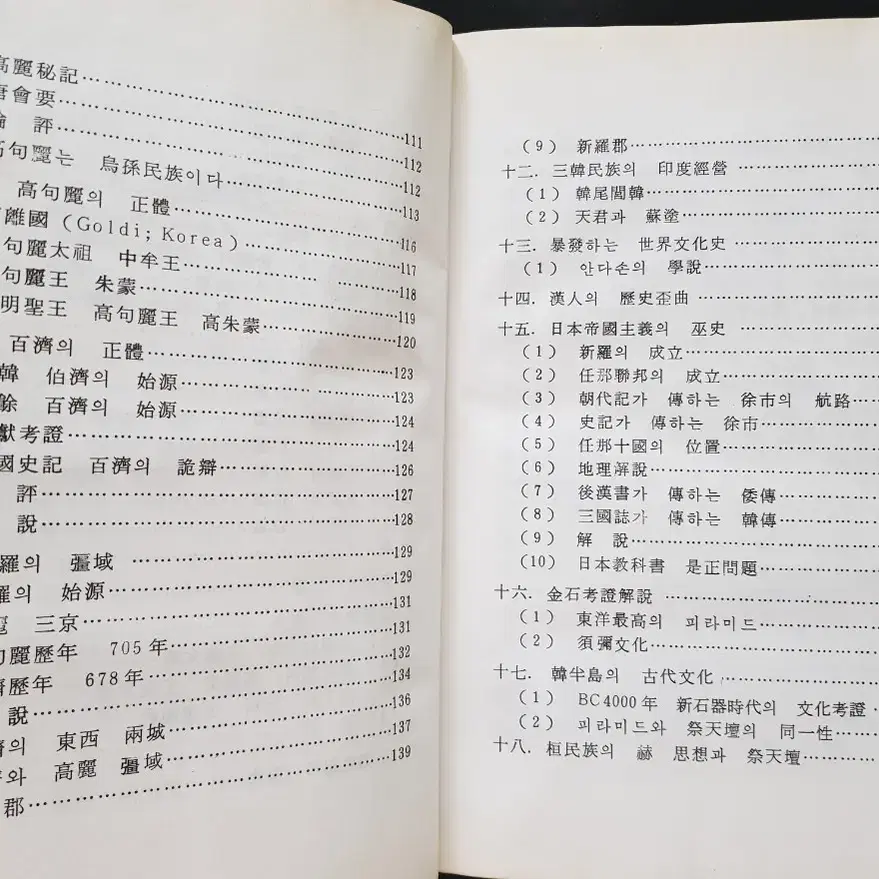 高麗秘記……………
唐會要……………111
論 評……………112
高句麗는 烏孫民族이다……………112
高句麗의 正體……………113
離國 (Goldi; Korea)……………116
句麗太祖 中牟王……………117
句麗王 朱蒙……………118
明聖王 高句麗王 高朱蒙……………119
百濟의 正體……………120
韓 伯濟의 始源……………123
餘 百濟의 始源……………123
獻考證……………124
國史記 百濟의 詭辯……………124
評……………126
說……………127
羅의 彊域……………128
羅의 始源……………129
麗 三京……………129
句麗歷年 705年……………131
濟歷年 678年……………131
說……………132
濟의 東西 兩城……………134
와 高麗 彊域……………136
郡……………137
139
(9) 新羅郡……………
十二. 三韓民族의 印度經營……………
(1) 韓尾閭韓……………
(2) 天君과 蘇塗……………
十三. 暴發하는 世界文化史……………
(1) 안다손의 學說……………
十四. 漢人의 歷史歪曲……………
十五. 日本帝國主義의 巫史……………
(1) 新羅의 成立……………
(2) 任那聯邦의 成立……………
(3) 朝代記가 傳하는 徐市의 航路……………
(4) 史記가 傳하는 徐市……………
(5) 任那十國의 位置……………
(6) 地理解說……………
(7) 後漢書가 傳하는 倭傳……………
(8) 三國誌가 傳하는 韓傳……………
(9) 解 說……………
(10) 日本教科書 是正問題……………
十六. 金石考證解說……………
(1) 東洋最高의 피라미드……………
(2) 須彌文化……………
十七. 韓半島의 古代文化……………
(1) BC4000年 新石器時代의 文化考證……………
(2) 피라미드와 祭天壇의 同一性……………
十八. 桓民族의 赫 思想과 祭天壇……………